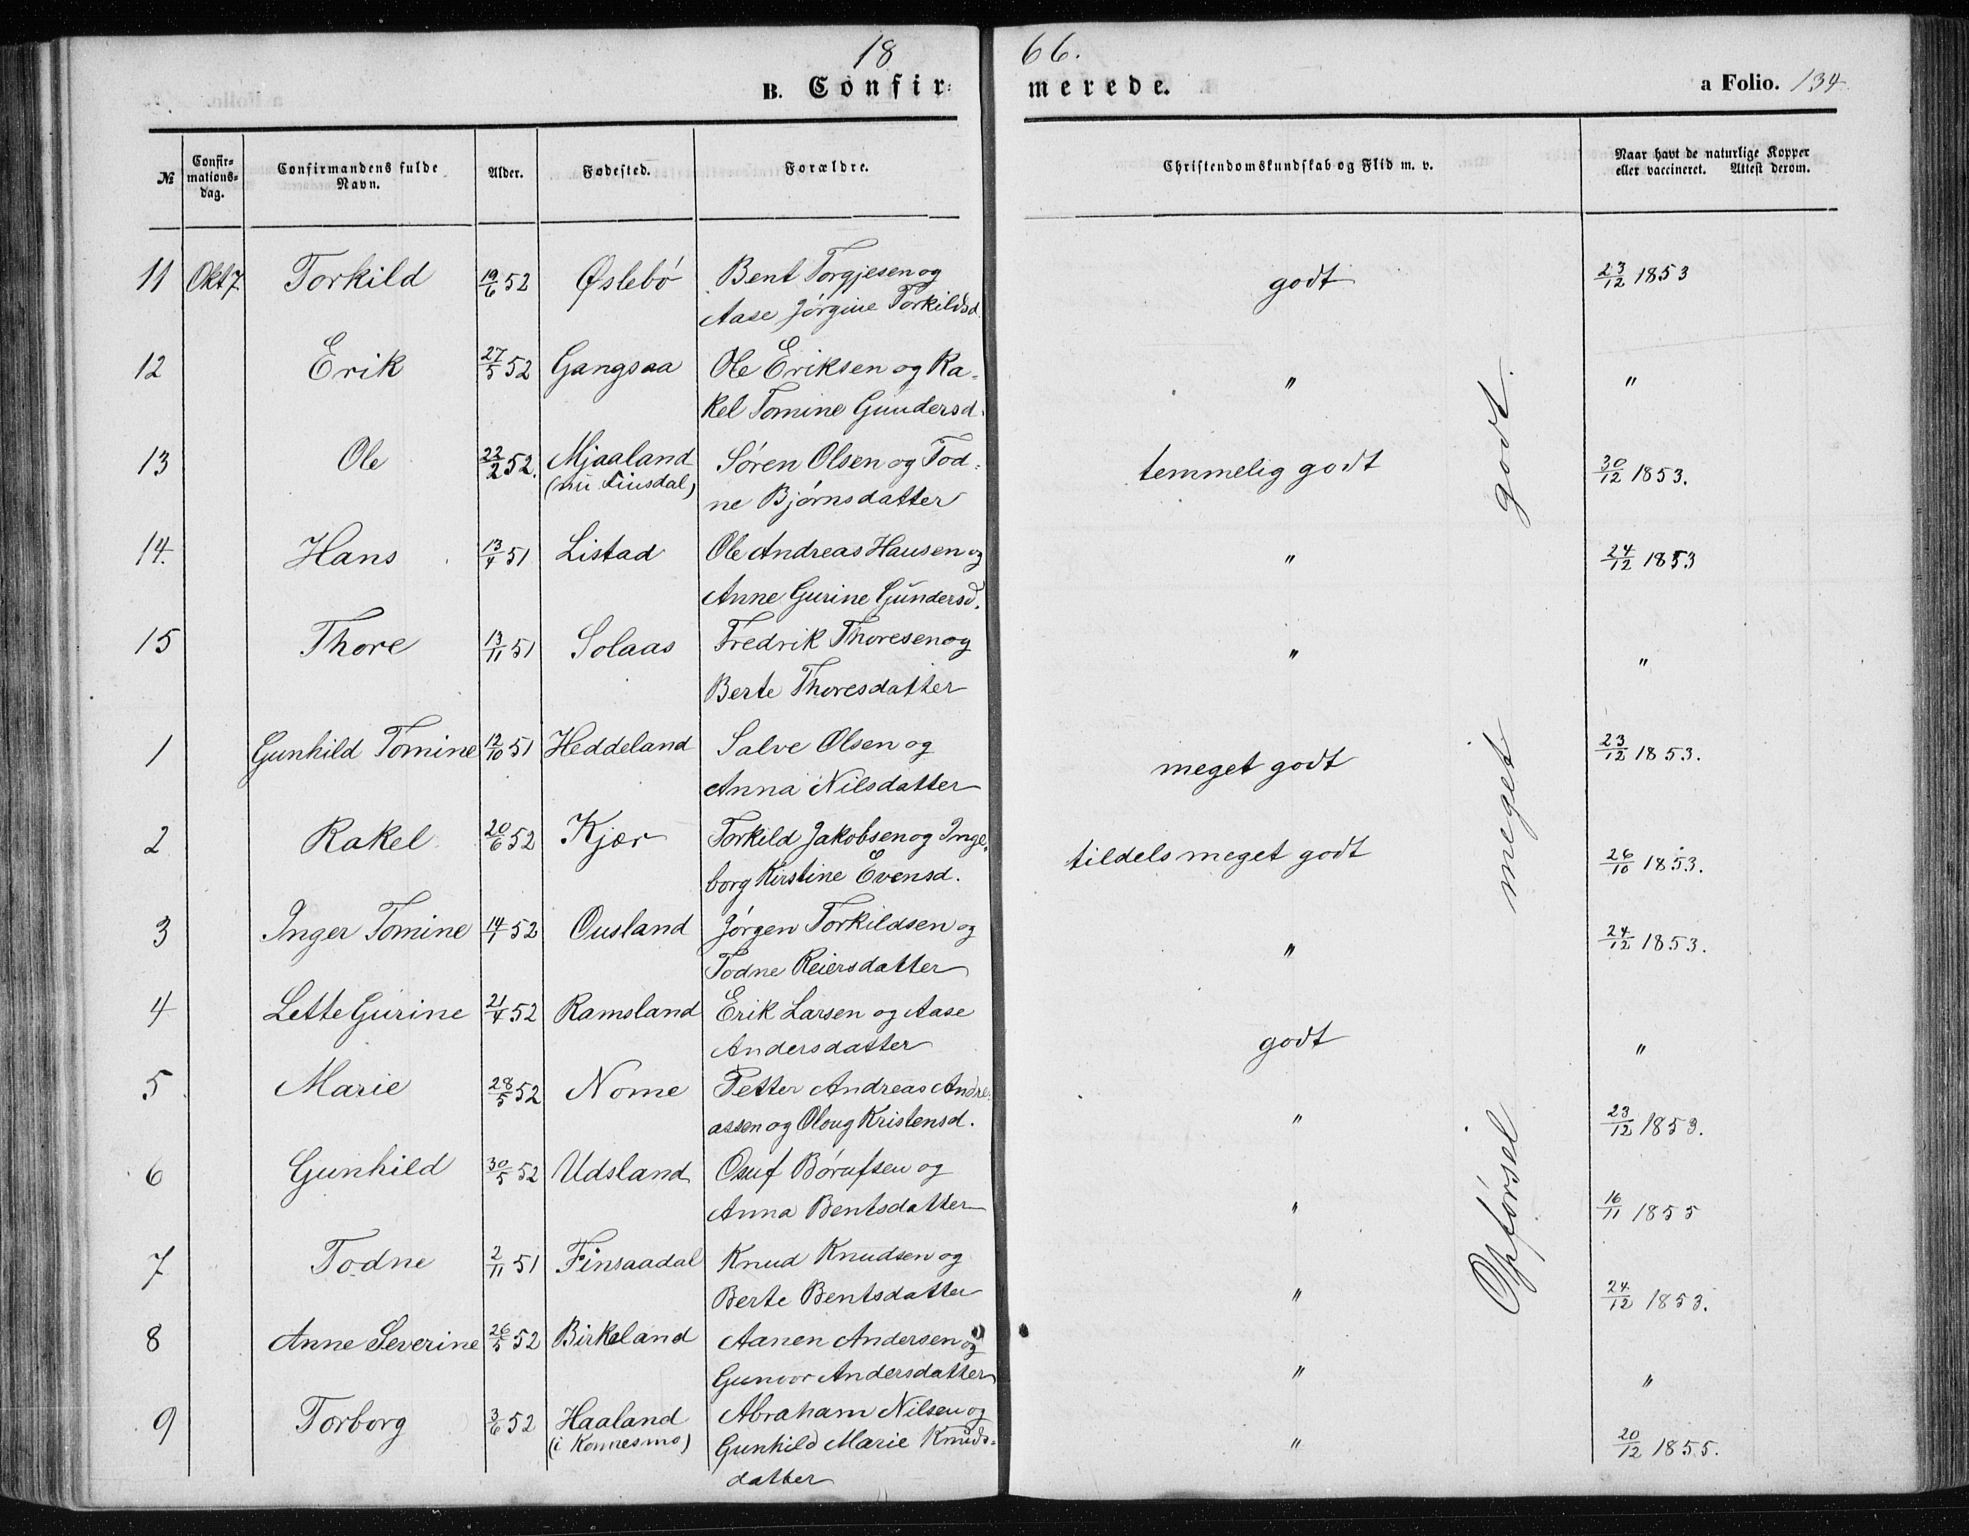 18 66.
B. Confir= merede. a Folio. 134
№ Confir=mations=dag. Confirmandens fulde Navn. Alder. Fødested. Forældre. Christendomskundskab og Flid m. v. Naar havt de naturlige Kopper eller vaccineret. Attest derom.
11 Okt 7 Torkild 19/6 52 Øslebö Bent Torgjesen og godt 23/12 1853
Aase Jörgine Torkildsd.
12 Erik 27/5 52 Gangsaa Ole Eriksen og Ra- " "
kel Tomine Gundersd.
13 Ole 22/2 52. Mjaaland Sören Olsen og Tod- temmelig godt 30/12 1853.
(nu Finsdal) ne Björnsdatter
14. Hans 13/4 51 Listad Ole Andreas Hansen og " 24/12 1853
Anne Gurine Gundersd.
15 Thore 13/11 51 Solaas Fredrik Thoresen og " "
Berte Thoresdatter
1 Gunhild Tomine 12/10 51 Heddeland Salve Olsen og meget godt 23/12 1853.
Anna Nilsdatter
2 Rakel 20/6 52 Kjær Torkild Jakobsen og Inge- tildels meget godt 26/10 1853.
borg Kirstine Evensd.
3 Inger Tomine 14/1 52 Ousland Jörgen Torkildsen og " 24/12 1853.
Todne Reiersdatter
4 Lette Gurine 21/4 52 Ramsland Erik Larsen og Aase godt "
Andersdatter
5 Marie 28/5 52 Nome Petter Andreas Andre- " 23/12 1853.
assen og Oloug Kristensd.
6 Gunhild 30/5 52 Udsland Osuf Börufsen og " 16/11 1855
Anna Bentsdatter
7 Todne 2/11 51 Finsaadal Knud Knudsen og " 24/12 1853.
Berte Bentsdatter
8 Anne Severine 26/5 52 Birkeland Aanen Andersen og " "
Gunvor Andersdatter
9 Torborg 3/6 52 Haaland Abraham Nilsen og " 20/12 1855.
(i Konnesmo) Gunhild Marie Knuds-
datter
Opförsel meget godt.